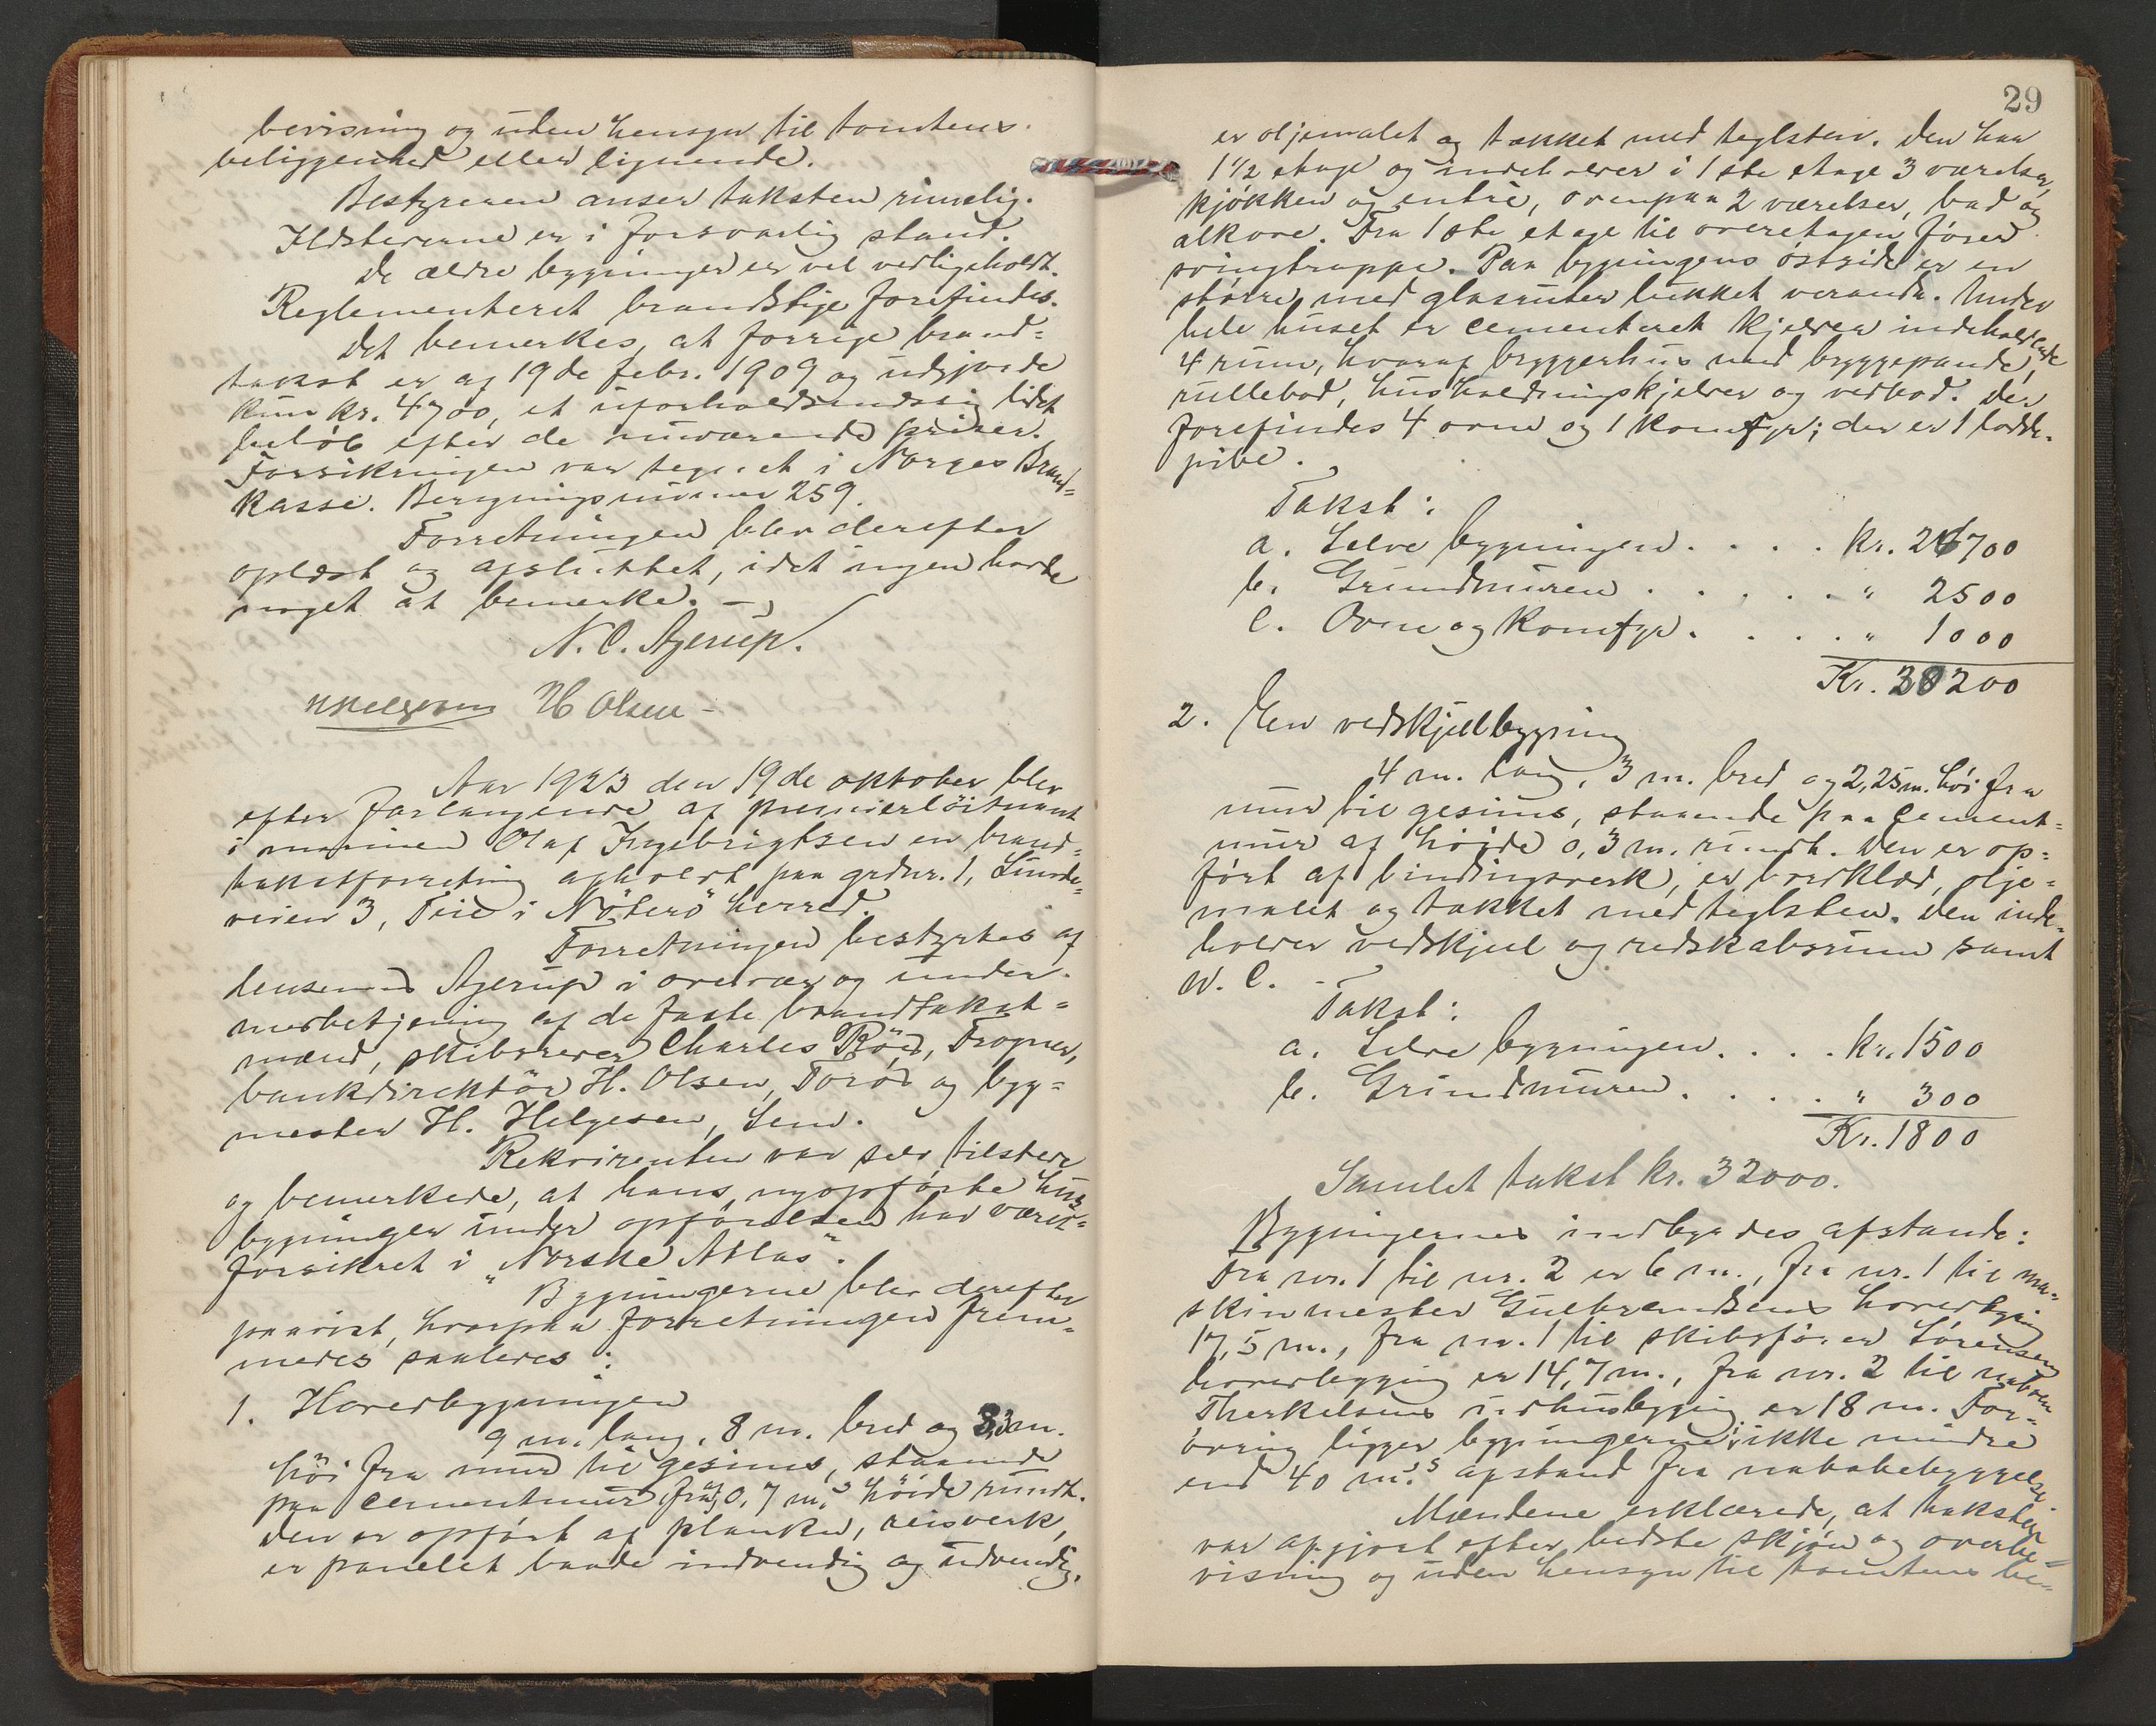 bevisning og uden hensyn til tomtens
beliggenhed eller lignende.
Bestyreren anser taksten rimelig.
Ildstederne er i forsvarlig stand.
De ældre bygninger er vel vedligeholdt.
Reglementeret brandstige forefindes.
Det bemerkes, at forrige brand=
takst er af 19de febr. 1909 og udgjorde
kun kr. 4700, et uforholdsmæssig lidet
beløb efter de nuværende priser.
Forsikringen var tegnet i Norges Brand=
kasse. Bygningsnummer 259.
Forretningen blev derefter
oplæst og afsluttet, idet ingen havde
noget at bemerke. —
N. C. Agerup.
H Helgesen H Olsen -
Aar 1923 den 19de oktober blev
efter forlangende af premierløitnant
i marinen Olaf Ingebrigtsen en brand=
takstforretning afholdt paa grdnr. 1, Lunde=
veien 3, Teie i Nøterø herred.
Forretningen bestyrtes af
lensmand Agerup i overvær og under
medbetjening af de faste brandtakst=
mænd, skibsreder Charles Röed, Trogner,
bankdirektör H. Olsen, Torød og byg=
mester H. Helgesen, Sem.
Rekvirenten var selv tilstede
og bemerkede, at hans nyopførte hus
bygninger under opførelsen har været
forsikret i "Norske Atlas".
Bygningerne blev derefter
paavist, hvorpaa forretningen frem=
medes saaledes:
1. Hovedbygningen
9 m. lang, 8 m. bred og 3,3 m.
höi fra mur til gesims, staaende
paa cementmur fra 0,7 m.s höide rundt.
Den er opført af planker, reisverk,
er panelet baade indvendig og udvendig,
29
er oljemalet og tækket med teglsten. Den har
1 1/2 etage og indeholder i 1ste etage 3 værelser,
kjøkken og entré, ovenpaa 2 værelser, bad og
alkove. Fra 1ste etage til overetagen fører
svingtrappe. Paa bygningens østside er en
større, med glasruter lukket veranda. Under
hele huset er cementeret kjelder indeholdende
4 rum, hvoraf bryggerhus med bryggepande,
rullebod, husholdningskjelder og vedbod. Der
forefindes 4 ovne og 1 komfyr; der er 1 lodde=
pibe.
Takst:
a. Selve bygningen . . . . kr. 26700
b. Grundmuren . . . . . " 2500
c. Ovne og komfyr . . . . " 1000
Kr. 30200
2. En vedskjulbygning
4 m. lang, 3 m. bred og 2,25 m. høi fra
mur til gesims, staaende paa cement=
mur af højde 0,3 m. rundt. Den er op=
ført af bindingsverk, er bordklæd, olje=
malet og tækket med teglsten. Den inde=
holder vedskjul og redskabsrum samt
W. C. -
Takst:
a. Selve bygningen . . . . kr. 1500
b. Grundmuren . . . . . " 300
Kr. 1800
Samlet takst kr. 32000.
Bygningernes indbyrdes afstande:
Fra nr. 1 til nr. 2 er 6 m., fra nr. 1 til ma=
skinmester Gulbrandsens hovedbygning
17,5 m., fra nr. 1 til skibsfører Sørensens
hovedbygging er 14,7 m., fra nr. 2 til naboen
Therkelsens udhusbygging er 18 m. For=
øvrig ligger bygningerne i ikke mindre
end 40 m.s afstand fra nabobebyggelse.
Mændene erklærede, at taksten
var afgjort efter bedste skjøn og overbe=
visning og uden hensyn til tomtens be=